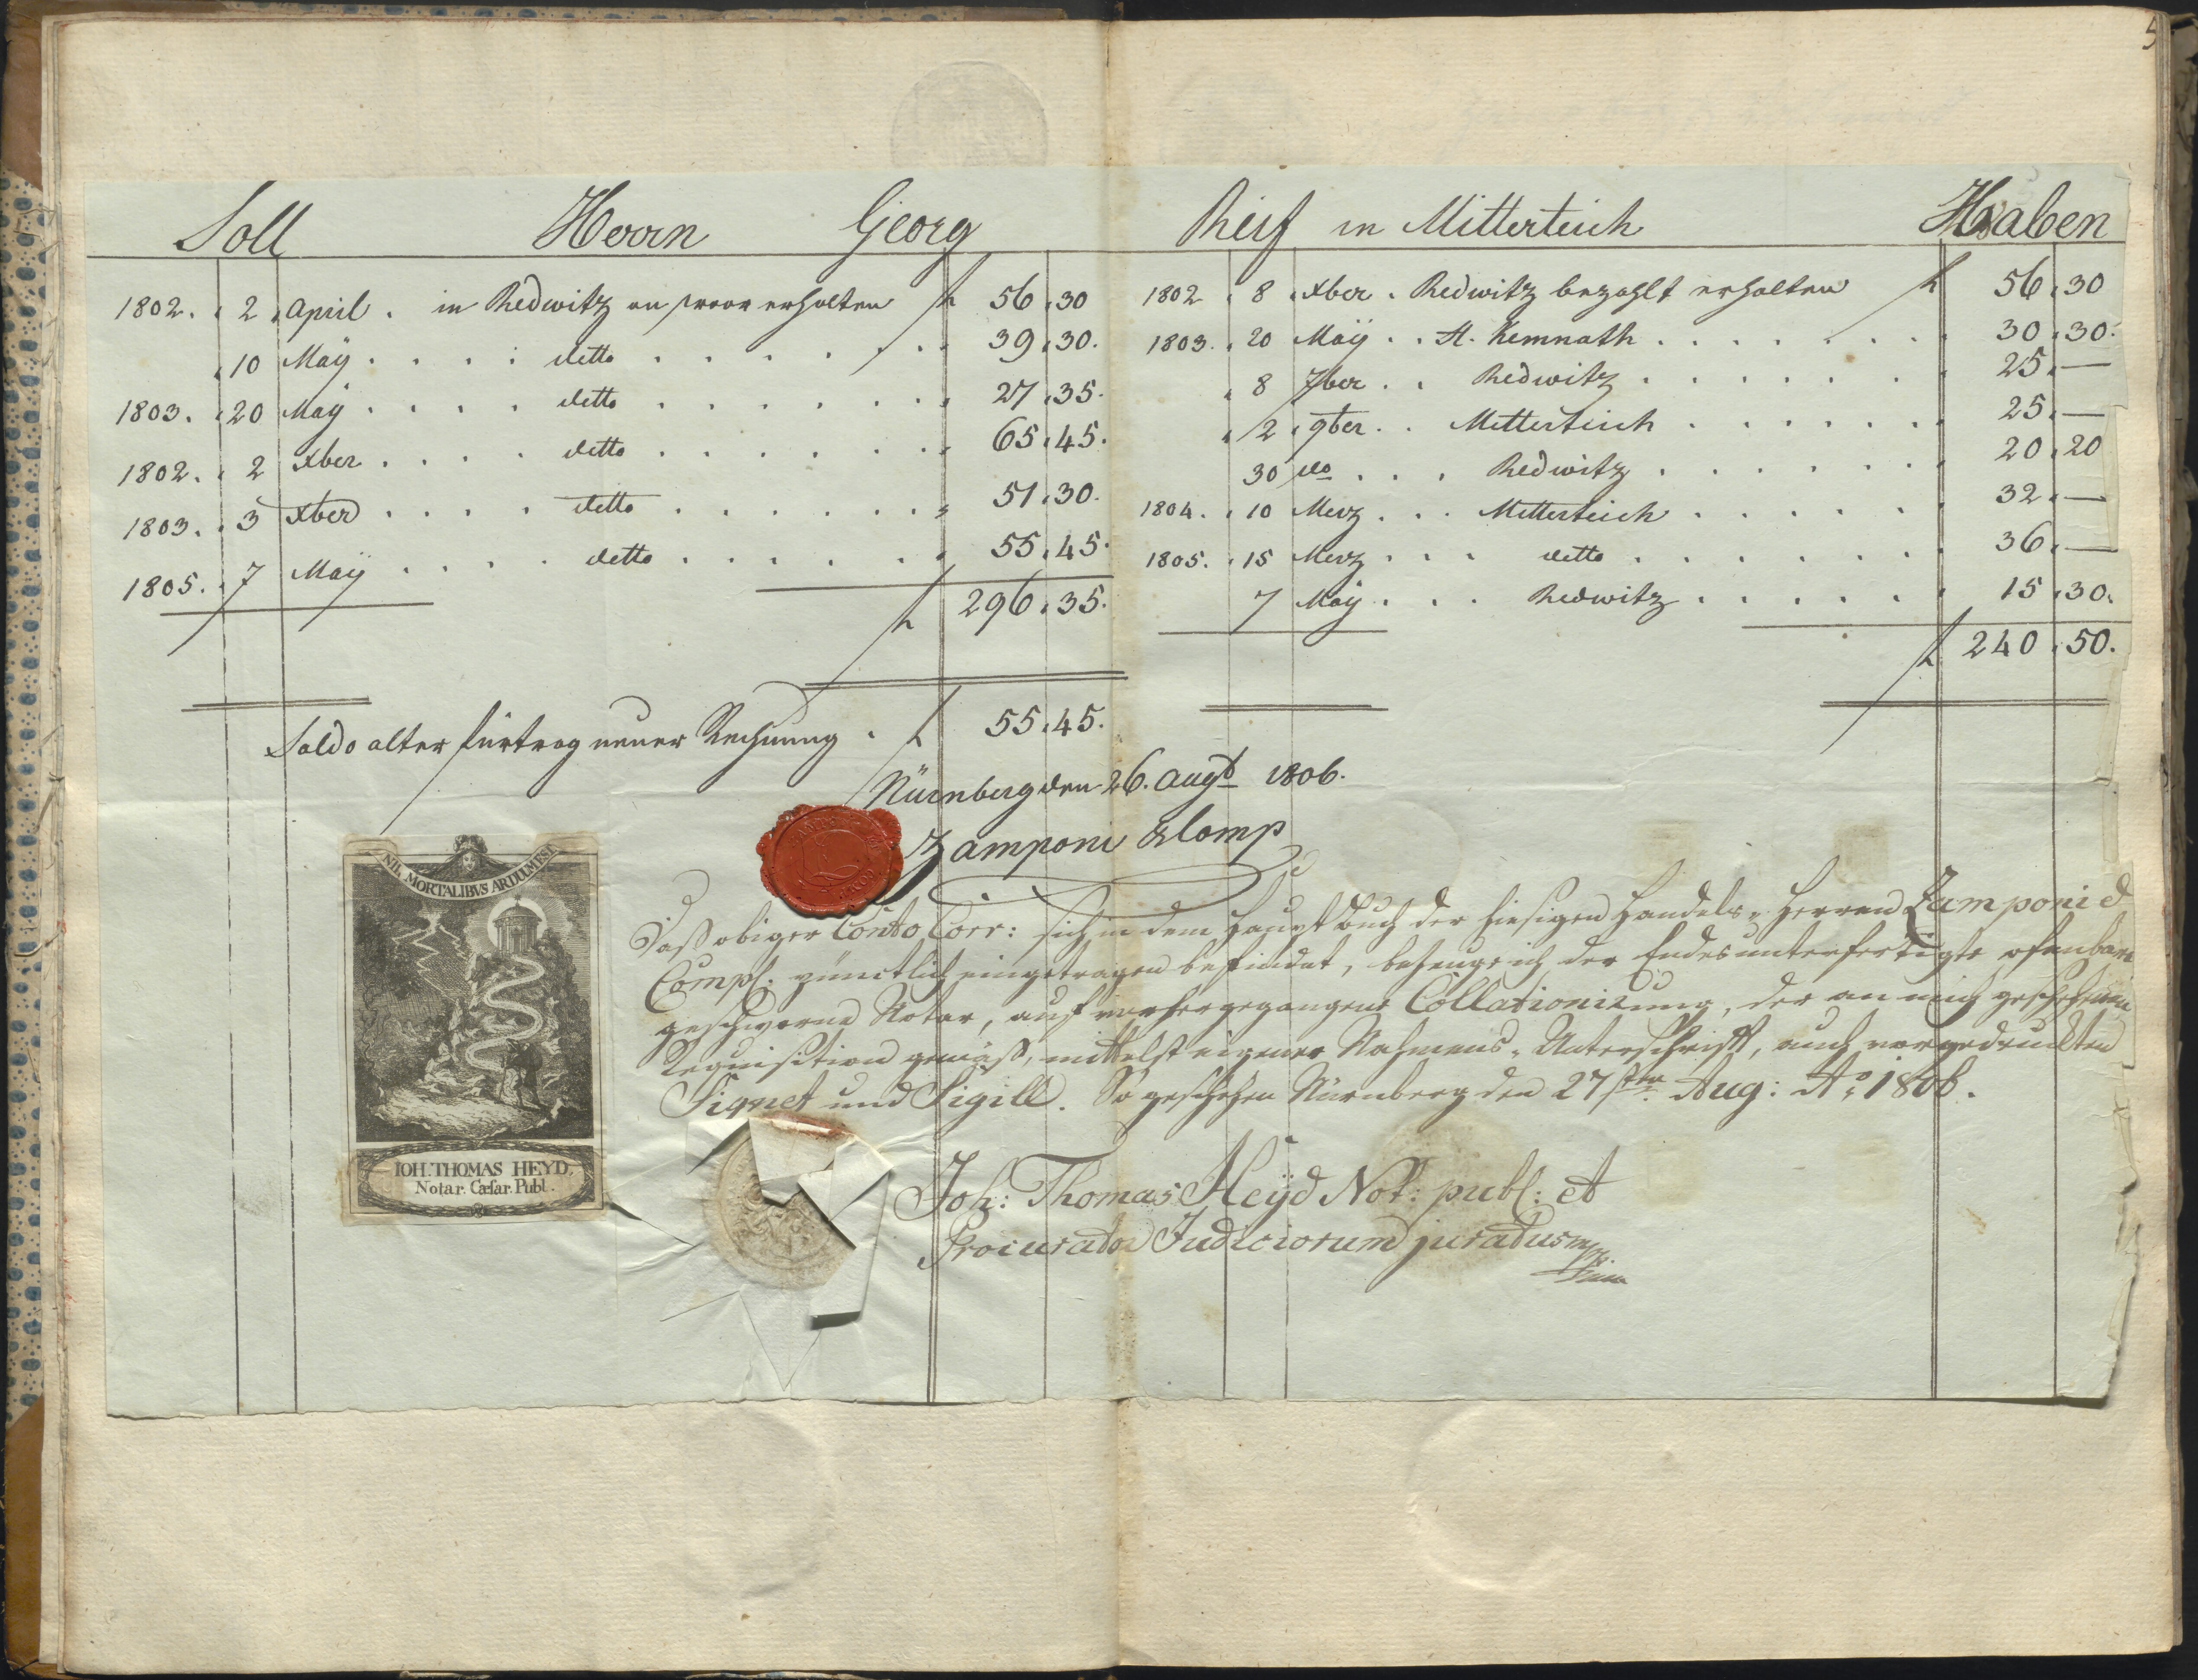 5
Soll Herrn Georg Reif in Mitterteich Haaben
1802. 2 April. in Redwitz an waar erholten f 56.30
10 Maÿ . . . . detto . . . . . . 39.30.
1803. 20 Maÿ . . . . detto . . . . . . 27.35.
1802. 2 Xber . . . . detto . . . . . . 65.45.
1803. 3 Xber . . . . detto . . . . . . 51.30.
1805. 7 Maÿ . . . . detto . . . . . . 55.45.
f 296.35.
Saldo alter fürtrag neuer Rechnung . f 55.45.
1802 8 Xber . Redwitz bezahlt erhalten f 56.30
1803. 20 Maÿ . . St. Kemnath . . . . . . 30.30.
8 7ber . . Redwitz . . . . . . 25.—
2 9ber . . Mitterteich . . . . . . 25.—
30 do . . . Redwitz . . . . . . 20.20
1804. 10 Merz . . . Mitterteich . . . . . . 32.—
1805. 15 Merz . . . detto . . . . . . 36.—
7 Maÿ . . . Redwitz . . . . . . 15.30.
f 240.50.
Nürnberg den 26. Augt 1806.
Zamponi & Comp
Daß obiger Conto Corr: sich in dem Hauptbuch der hiesigen Handels-Herren Zamponi &
Comp: pünctlich eingetragen befindet, bezeuge ich der Endesunterfertigte ofenbare
geschworne Notar, auf vorhergegangene Collationirung, der an mich geschehenen
Requisition gemäß, mittelst eigener Nahmens-Unterschrift, auch vorgedruckten
Signet und Sigill. So geschehen Nürnberg den 27sten Aug: Ao 1806.
Joh: Thomas Heÿd Not: publ: et
Procurator Judiciorum juratus mpr.
NIL MORTALIBVS ARDUUM EST.
IOH. THOMAS HEYD.
Notar. Cæsar. Publ.